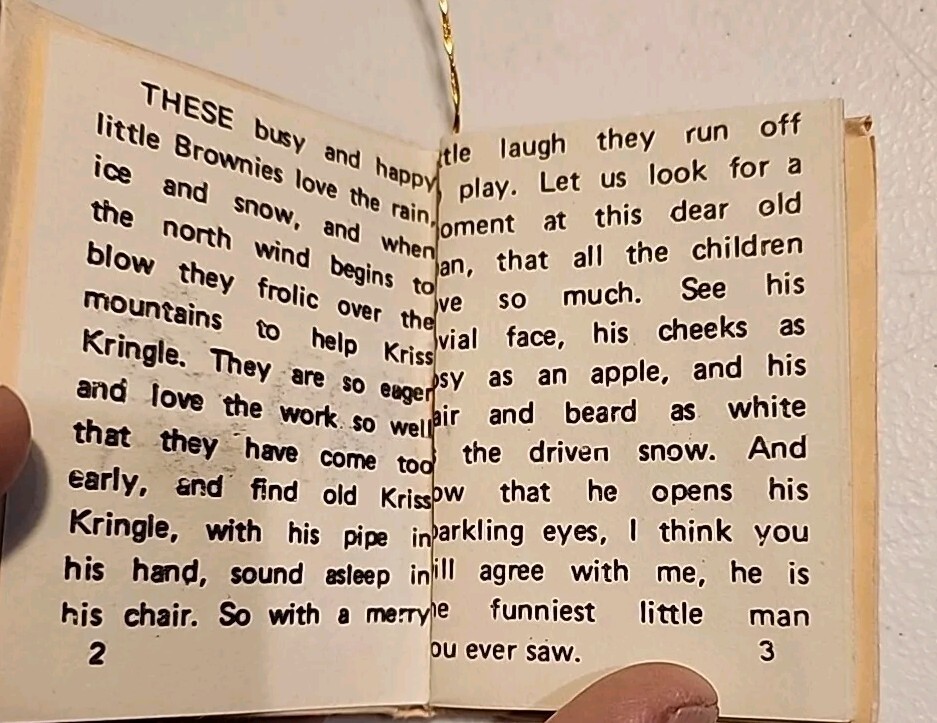 THESE busy and happy
little Brownies love the rain,
ice and snow, and when
the north wind begins to
blow they frolic over the
mountains to help Kriss
Kringle. They are so eager
and love the work so well
that they have come too
early, and find old Kriss
Kringle, with his pipe in
his hand, sound asleep in
his chair. So with a merry
2
tle laugh they run off
play. Let us look for a
oment at this dear old
an, that all the children
ve so much. See his
vial face, his cheeks as
osy as an apple, and his
air and beard as white
the driven snow. And
ow that he opens his
parkling eyes, I think you
ill agree with me, he is
he funniest little man
ou ever saw.
3